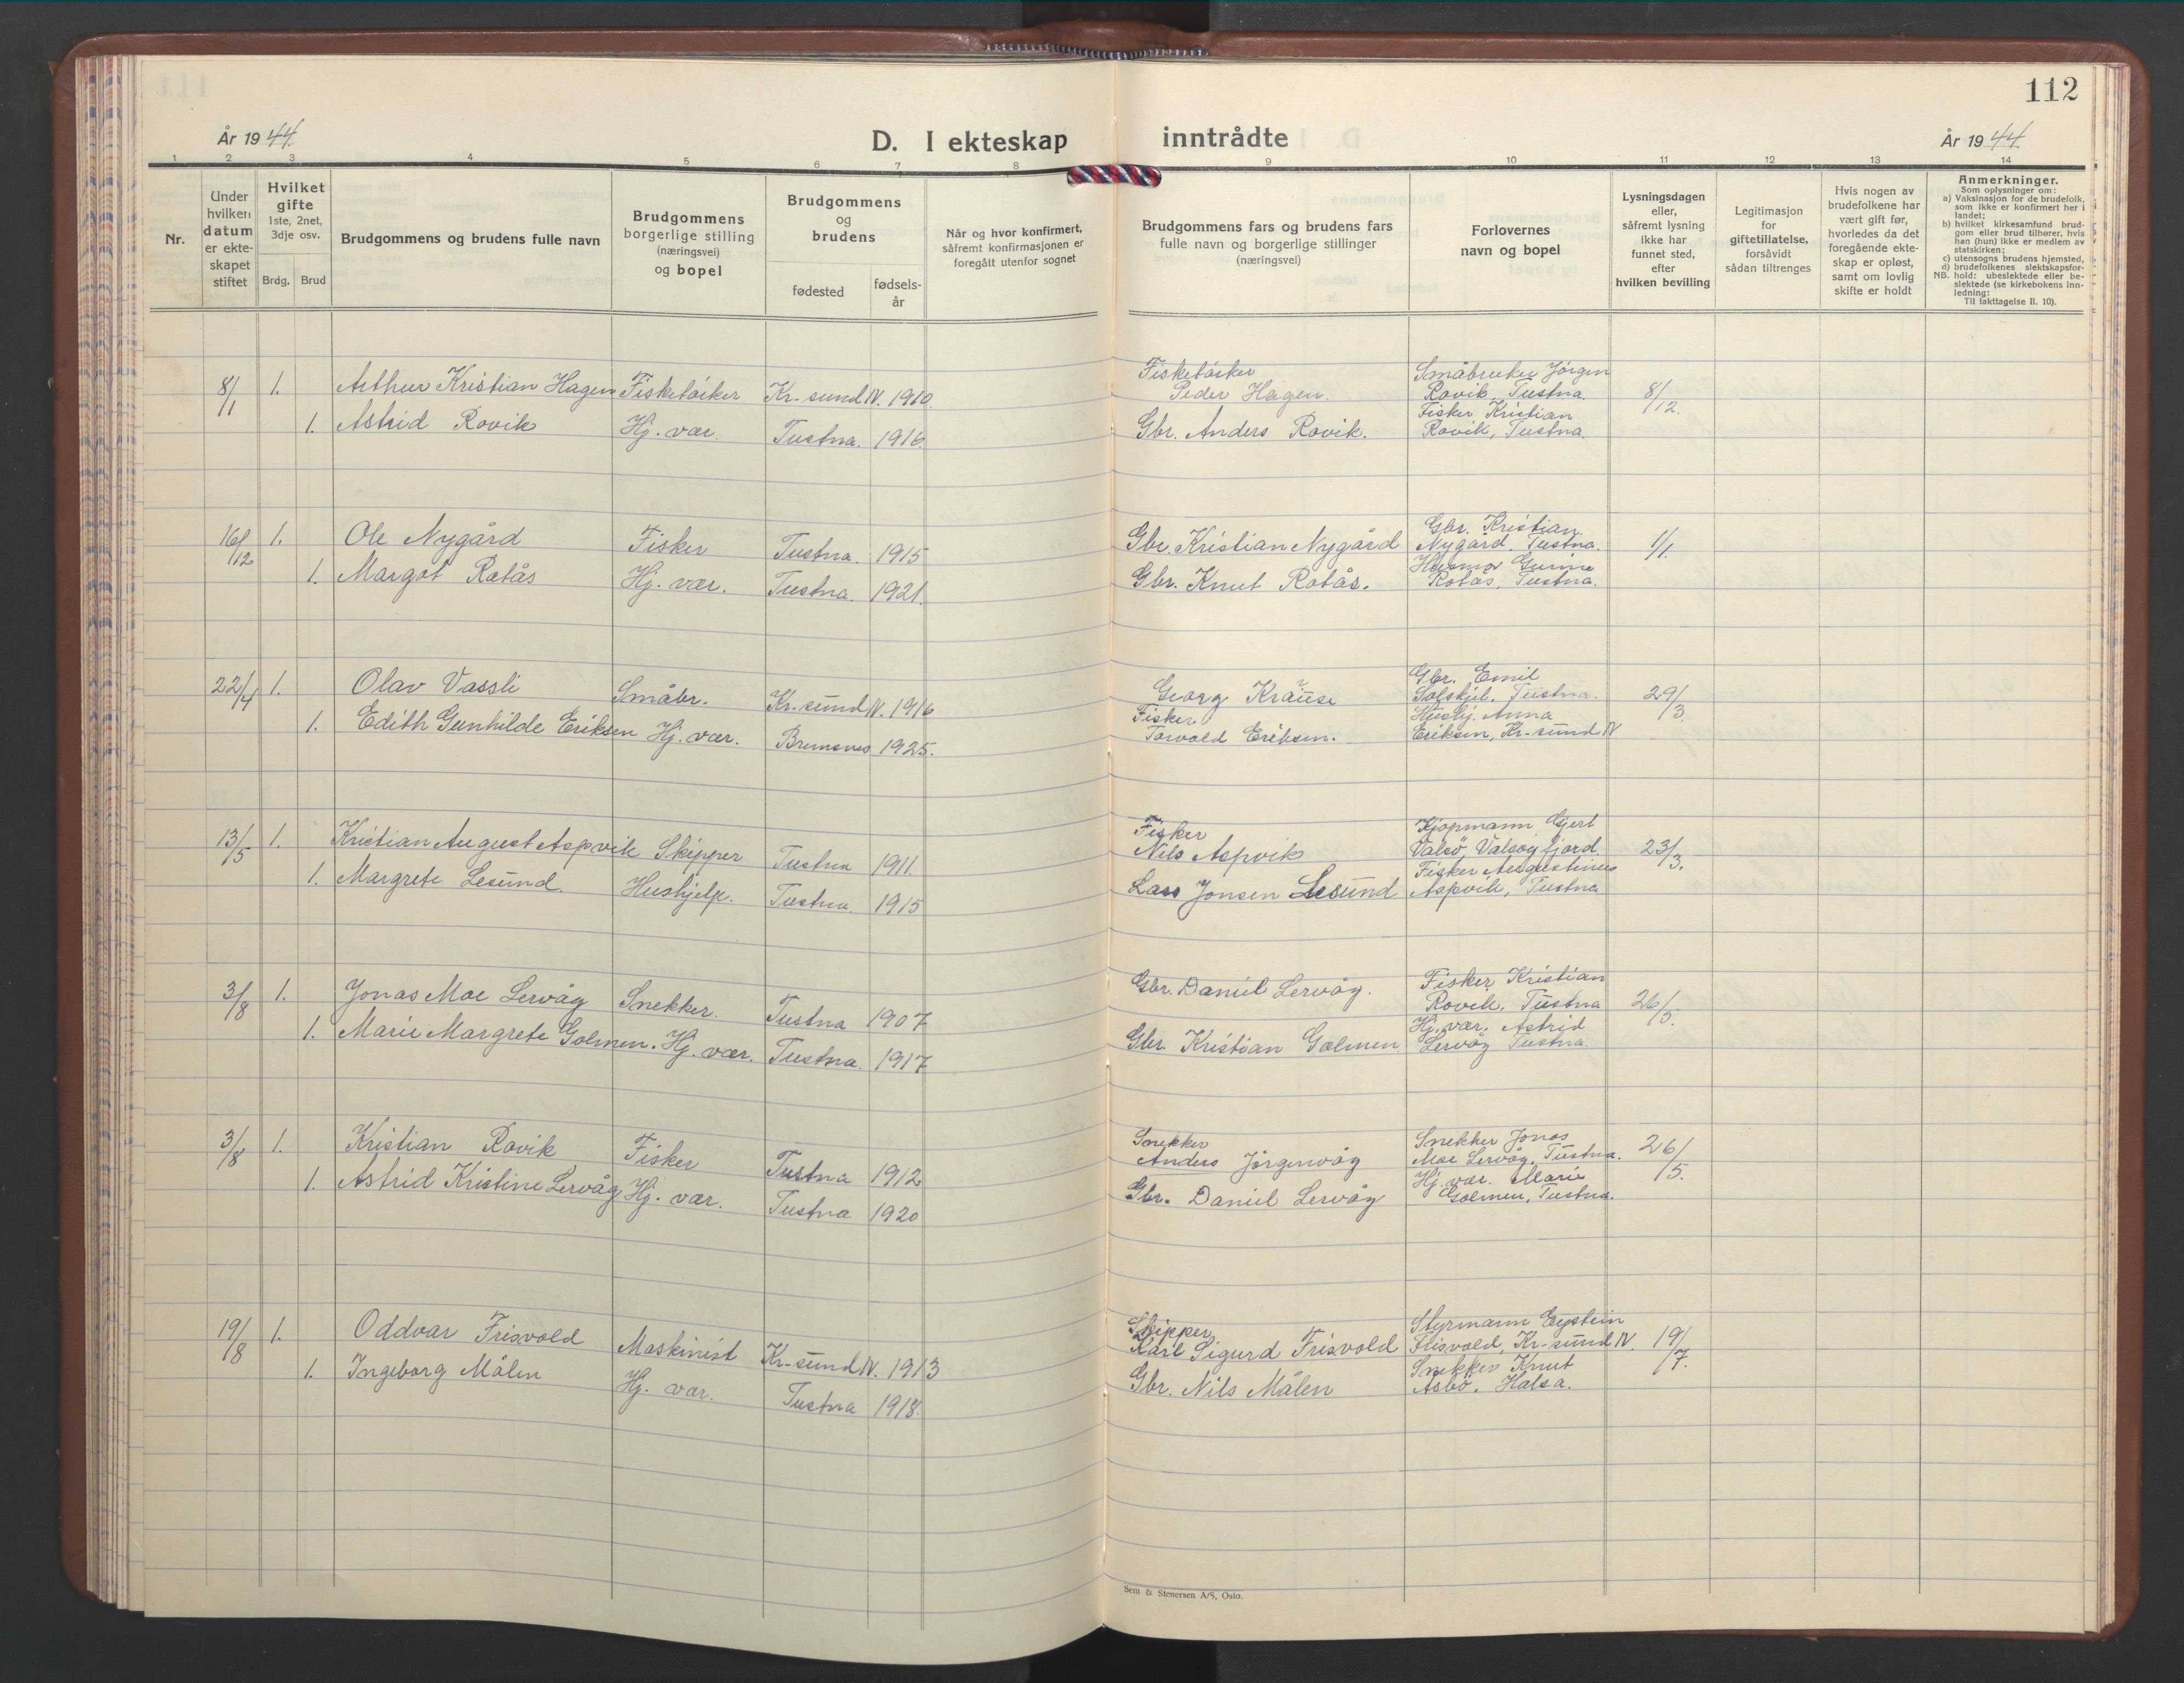 112
År 1944.
D. I ekteskap inntrådte
År 1944.
1 2 3 4 5 6 7 8 9 10 11 12 13 14
Nr.
Under hvilken datum er ekteskapet stiftet
Hvilket gifte 1ste, 2net, 3dje osv.
Brdg. Brud
Brudgommens og brudens fulle navn
Brudgommens borgerlige stilling (næringsvei) og bopel
Brudgommens og brudens
fødested
fødsels-år
Når og hvor konfirmert, såfremt konfirmasjonen er foregått utenfor sognet
Brudgommens fars og brudens fars fulle navn og borgerlige stillinger (næringsvei)
Forlovernes navn og bopel
Lysningsdagen eller, såfremt lysning ikke har funnet sted, efter hvilken bevilling
Legitimasjon for giftetillatelse, forsåvidt sådan tiltrenges
Hvis nogen av brudefolkene har vært gift før, hvorledes da det foregående ekteskap er opløst, samt om lovlig skifte er holdt
Anmerkninger.
Som oplysninger om:
a) Vaksinasjon for de brudefolk, som ikke er konfirmert her i landet;
b) hvilket kirkesamfund brudgom eller brud tilhører, hvis han (hun) ikke er medlem av statskirken;
c) utensogns brudens hjemsted,
d) brudefolkenes slektskapsforhold: ubeslektede eller beslektede (se kirkebokens innledning:
NB.
Til iakttagelse II. 10).
8/1 1. Arthur Kristian Hagen Fisketørker Kr-sund N. 1910. Fisketørker Peder Hagen. Småbruker Jørgen Rovik, Tustna. 8/12.
1. Astrid Rovik Hj. vær. Tustna. 1916. Gbr. Anders Rovik. Fisker Kristian Rovik, Tustna.
16/12 1. Ole Nygård Fisker Tustna. 1915 Gbr. Kristian Nygård Gbr. Kristian Nygård, Tustna. 1/1.
1. Margot Rotås Hj. vær. Tustna. 1921. Gbr. Knut Rotås. Husmor Gurine Rotås, Tustna.
22/4 1. Olav Vassli Småbr. Kr. sund N. 1916 Georg Krause Gbr. Emil Solskjel, Tustna. 29/3.
1. Edith Gunhilde Eriksen Hj. vær. Bremsnes 1925. Fisker Torvald Eriksen. Hushj. Anna Eriksen, Kr-sund N
13/5 1. Kristian August Aspvik Skipper Tustna 1911. Fisker Nils Aspvik Kjøpmann Gjert Valsø, Valsøyfjord. 23/3.
1. Margrete Lesund. Hushjelp. Tustna. 1915 Lars Jonsen Lesund Fisker Augustinus Aspvik, Tustna
3/8 1. Jonas Moe Lervåg Snekker. Tustna 1907 Gbr. Daniel Lervåg. Fisker Kristian Rovik, Tustna 26/5.
1. Marie Margrete Golmen. Hj. vær. Tustna. 1917 Gbr. Kristian Golmen Hj. vær. Astrid Lervåg Tustna.
3/8 1. Kristian Rovik Fisker Tustna 1912 Snekker Anders Jørgenvåg Snekker Jonas Moe Lervåg, Tustna. 26/5.
1. Astrid Kristine Lervåg Hj. vær. Tustna 1920 Gbr. Daniel Lervåg Hj. vær. Marie Golmen, Tustna.
19/8 1. Oddvar Frisvold Maskinist Kr-sund N. 1913 Skipper Karl Sigurd Frisvold Styrmann Eystein Frisvold, Kr-sund N. 19/7.
1. Ingeborg Målen Hj. vær. Tustna 1918. Gbr. Nils Målen Snekker Knut Åsbø, Halsa.
Sem & Stenersen A/S, Oslo.